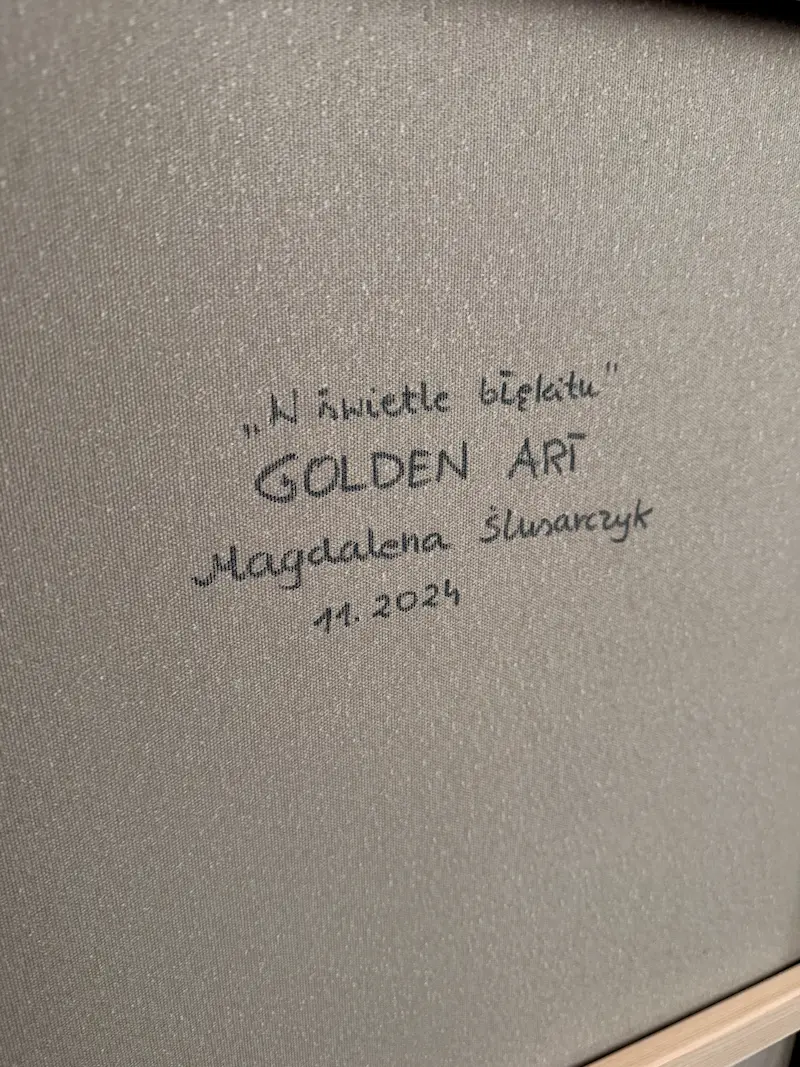 „W świetle błękitu"
GOLDEN ART
Magdalena Ślusarczyk
11.2024